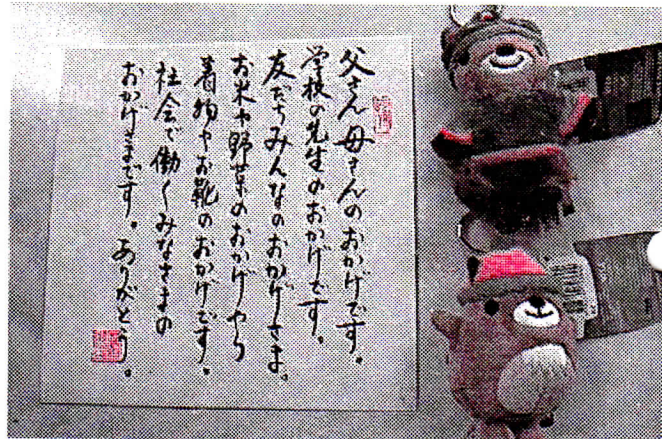 父さん母さんのおかげです。
学校の先生のおかげです。
友だちみんなのおかげさま。
お米や野菜のおかげやら
着物やお靴のおかげです。
社会で働くみなさまの
おかげさまです。ありがとう。